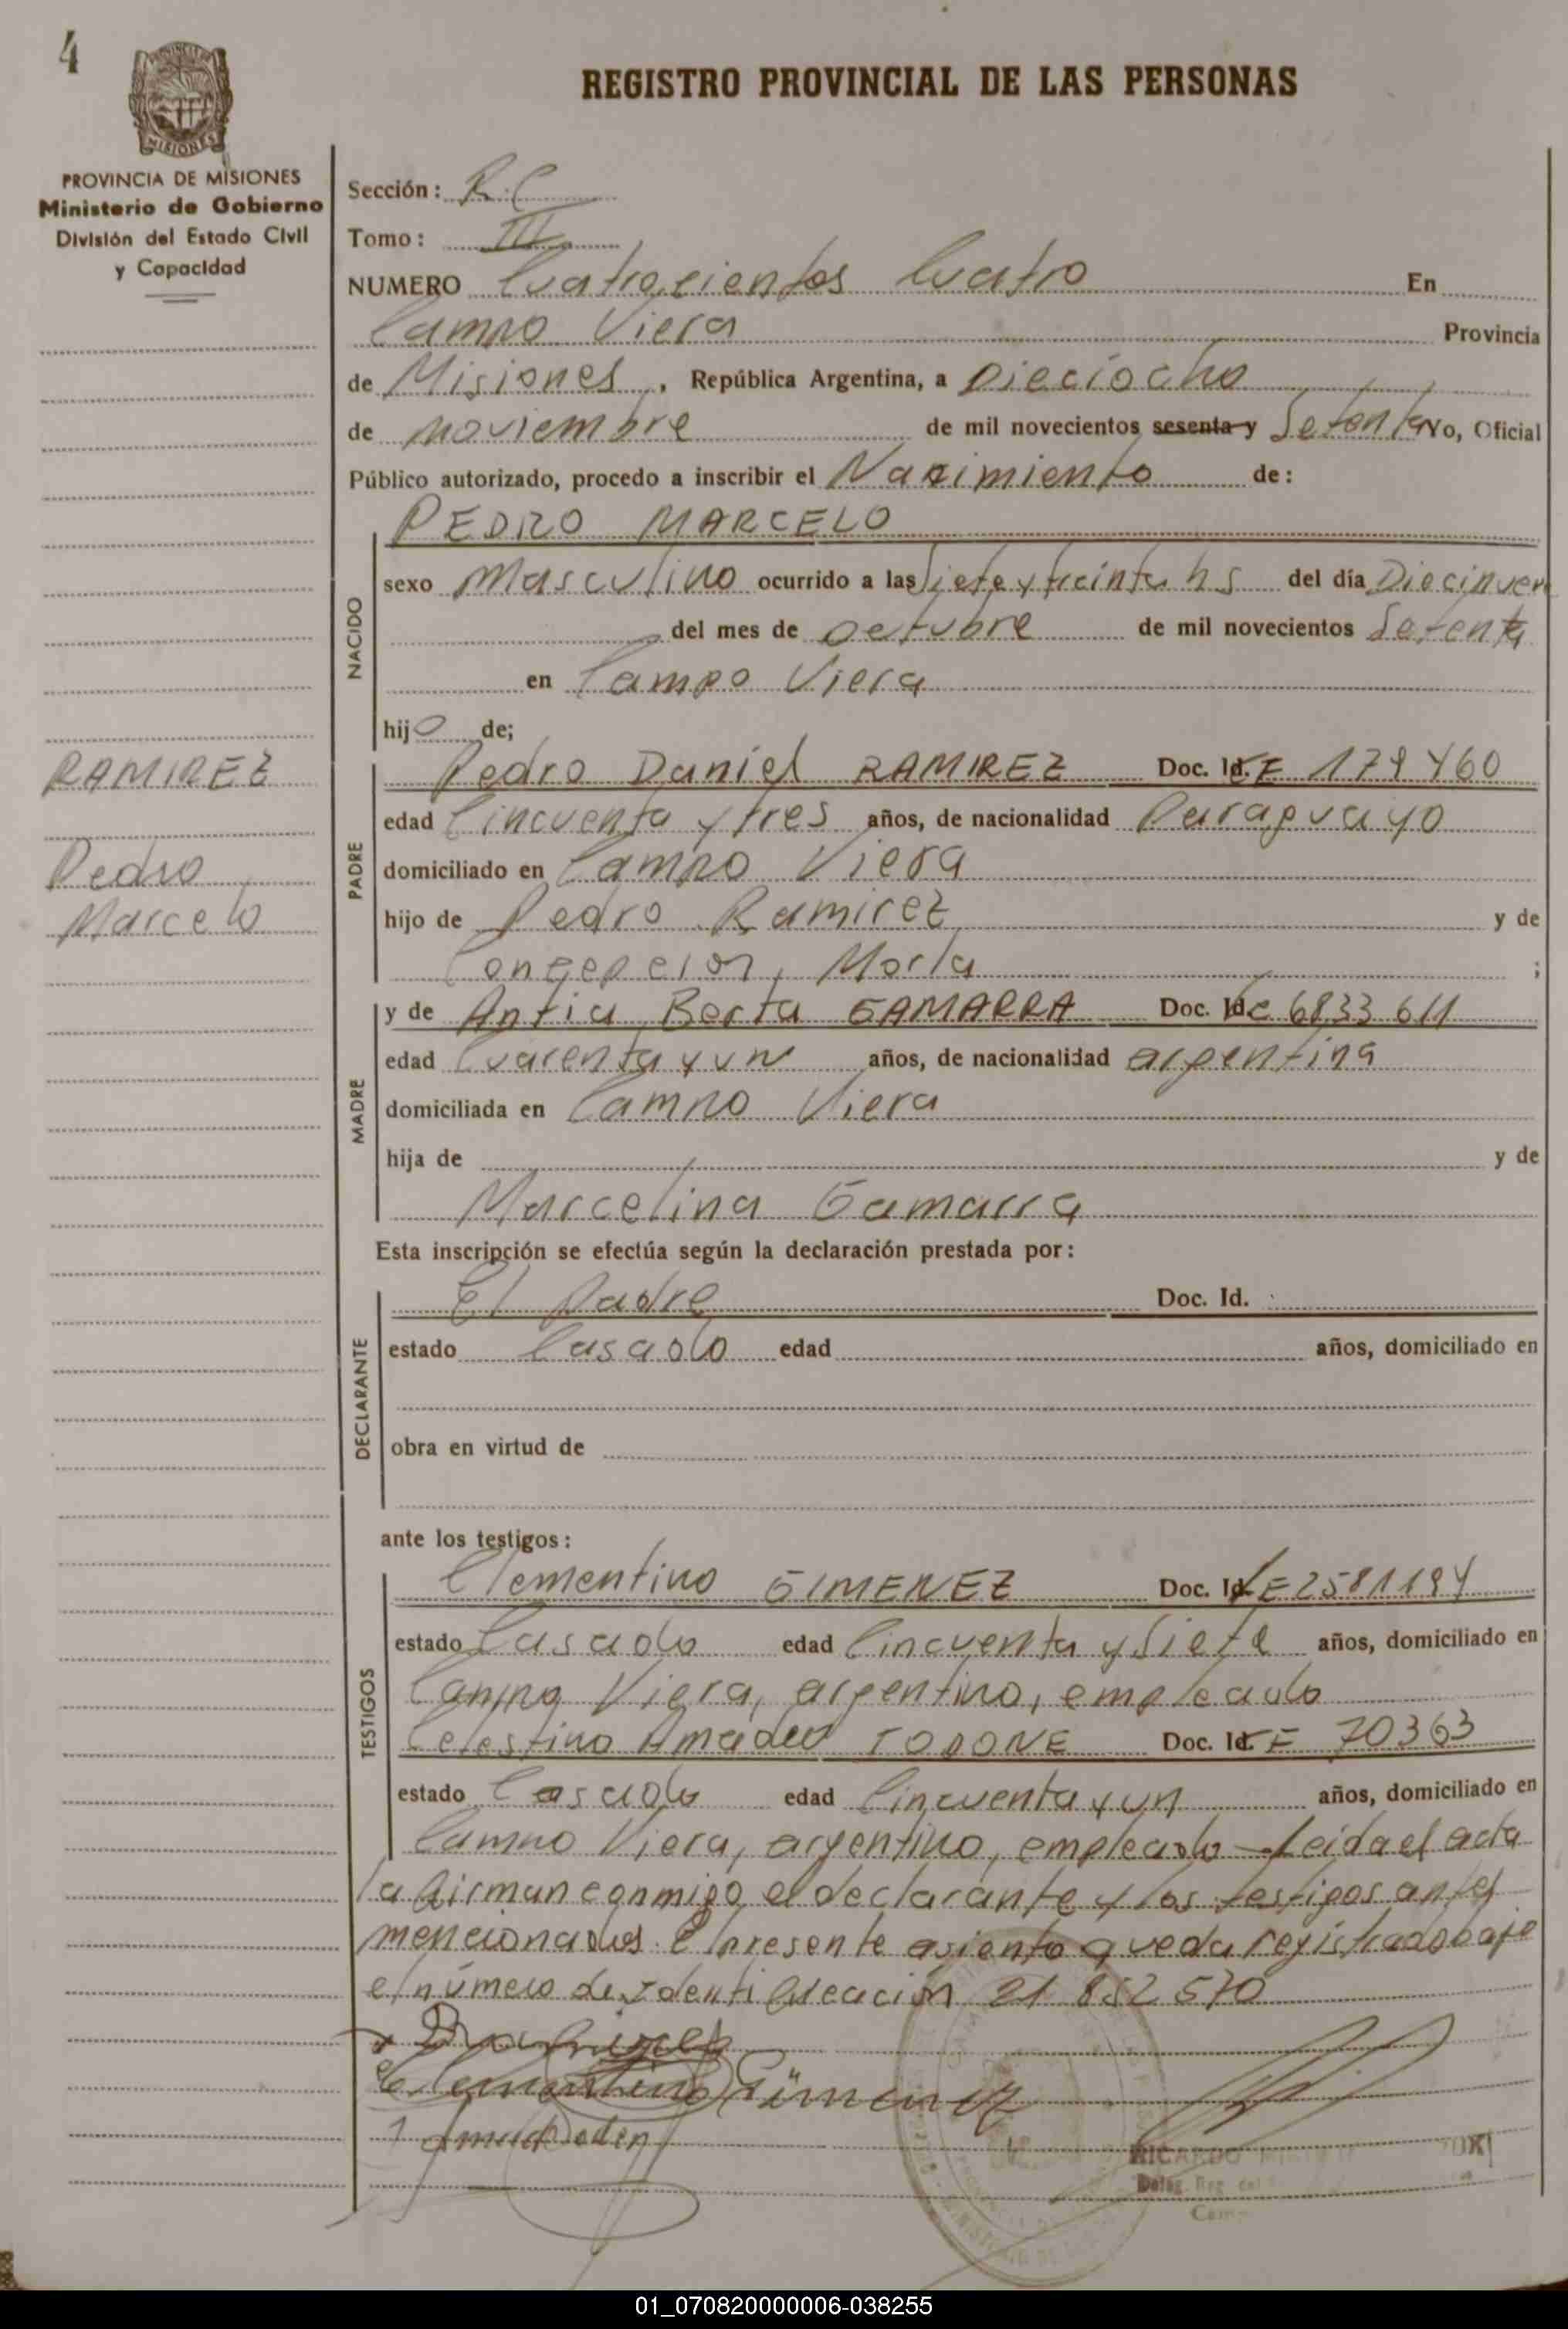 4
REGISTRO PROVINCIAL DE LAS PERSONAS
MISIONES
PROVINCIA DE MISIONES
Ministerio de Gobierno
División del Estado Civil
y Capacidad
Sección: R.C
Tomo: III
NUMERO Cuatrocientos Cuatro En
Campo Viera Provincia
de Misiones, República Argentina, a Dieciocho
de noviembre de mil novecientos sesenta y Setenta Yo, Oficial
Público autorizado, procedo a inscribir el Nacimiento de:
PEDRO MARCELO
NACIDO
sexo Masculino ocurrido a las Siete y treinta hs del día Diecinueve
del mes de octubre de mil novecientos Setenta
en Campo Viera
hijo de;
RAMIREZ
Pedro
Marcelo
PADRE
Pedro Daniel RAMIREZ Doc. Id.
edad Cincuenta y tres años, de nacionalidad Paraguayo
domiciliado en Campo Viera
hijo de Pedro Ramirez y de
Concepcion Morla ;
MADRE
y de Antia Berta GAMARRA Doc. Id. 6833 611
edad Cuarenta y un años, de nacionalidad argentina
domiciliada en Campo Viera
hija de y de
Marcelina Gamarra
Esta inscripción se efectúa según la declaración prestada por:
DECLARANTE
El Padre Doc. Id.
estado Casado edad años, domiciliado en
obra en virtud de
ante los testigos:
TESTIGOS
Clementino GIMENEZ Doc. Id.
estado Casado edad Cincuenta y Siete años, domiciliado en
Campo Viera, argentino, empleado
Celestino Amadeo TODONE Doc. Id. 70363
estado Casado edad Cincuenta y un años, domiciliado en
Campo Viera, argentino, empleado - Leida el acta
la firman conmigo el declarante y los testigos antes
mencionados. El presente asiento queda registrado bajo
el número de identificación 21 852 570
Clementino Gimenez
RICARDO
Deleg. Reg. del
01_070820000006-038255